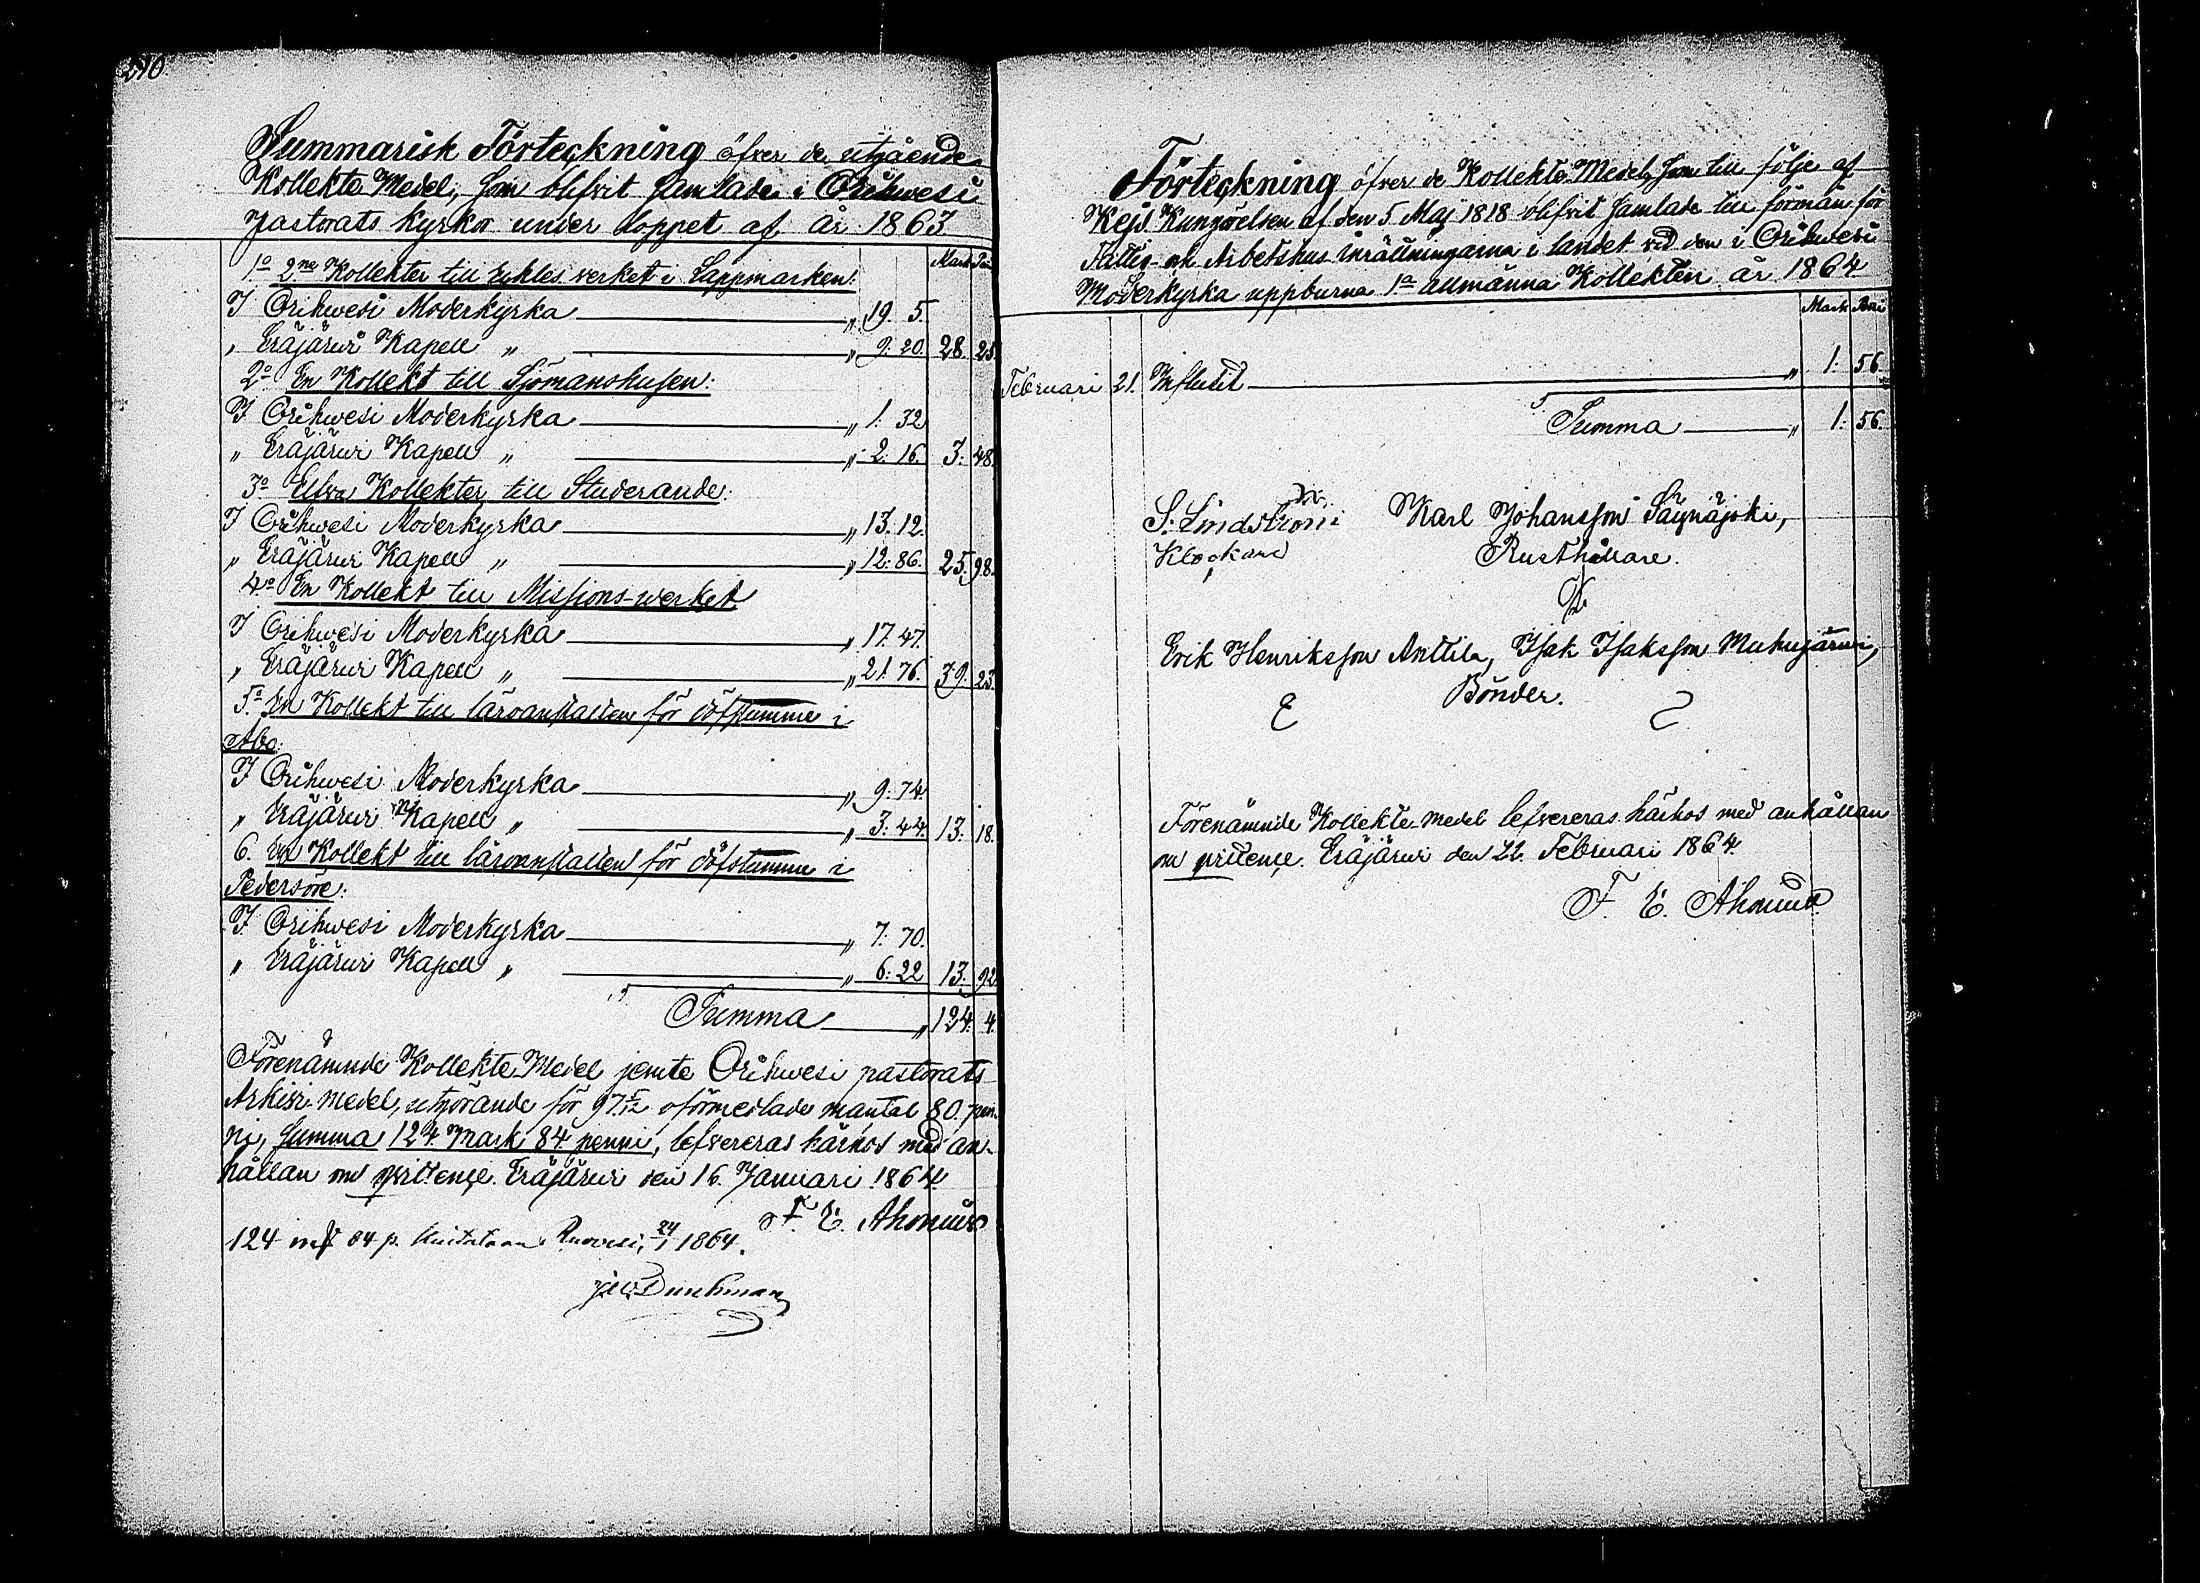 210
Summarisk Förteckning öfver de utgående
Kollekte Medel, som blifvit samlade i Orihwesi
pastorats kyrkor under loppet af år 1863
Mark Pni
1o 2ne Kollekter till Eckles. verket i Lappmarken:
I Orihwesi Moderkyrka " 19. 5.
" Eräjärwi Kapell " " 9. 20. 28. 25.
2o En Kollekt till Sjömanshusen:
I Orihwesi Moderkyrka " 1. 32
" Eräjärwi Kapell " " 2. 16. 3. 48.
3o Elfva Kollekter till Studerande:
I Orihwesi Moderkyrka " 13. 12.
" Eräjärwi Kapell " " 12. 86. 25. 98.
4o En Kollekt till Missions-werket
I Orihwesi Moderkyrka " 17. 47.
" Eräjärwi Kapell " " 21. 76. 39. 23.
5o En Kollekt till läroanstalten för döfstumme i
Åbo:
I Orihwesi Moderkyrka " 9. 74.
" Eräjärwi Kapell " " 3. 44. 13. 18.
6. En Kollekt till läroanstalten för döfstumme i
Pedersöre:
I Orihwesi Moderkyrka " 7. 70.
" Eräjärwi Kapell " " 6. 22 13. 92.
Summa " 124. 4.
Förenämnde Kollekte Medel jemte Orihwesi pastorats
Arkivi-medel, utgörande för 97 oförmedlade mantal 80 pen-
ni, Summa 124 Mark 84 penni, lefvereras härhos med an-
hållan om qvittence. Eräjärwi den 16. Januari 1864.
F. E. Ahonius
124 mk 84 p. kvitetaan Ruovesi, 24/1 1864.
Durchman
Förteckning öfver de Kollekte-Medel, som till följe af
Kejs. Kungörelsen af den 5. Maj 1818 blifvit samlade till förmån för
Fattig- och Arbetshus inrättningarna i landet vid den i Orihwesi
Moderkyrka uppburna 1a allmänna Kollekten år 1864
Mark Pni
Februari 21. Influtit " 1. 56.
Summa " 1. 56.
S. Lindström Karl Johansson Säynäjoki,
Klockare Rusthållare.
Erik Henriksson Anttila, Isak Isaksson Muhujärwi,
Bönder.
Förenämnde Kollekte-medel lefvereras härhos med anhållan
om qvittence. Eräjärwi den 22. Februari 1864.
F. E. Ahonius